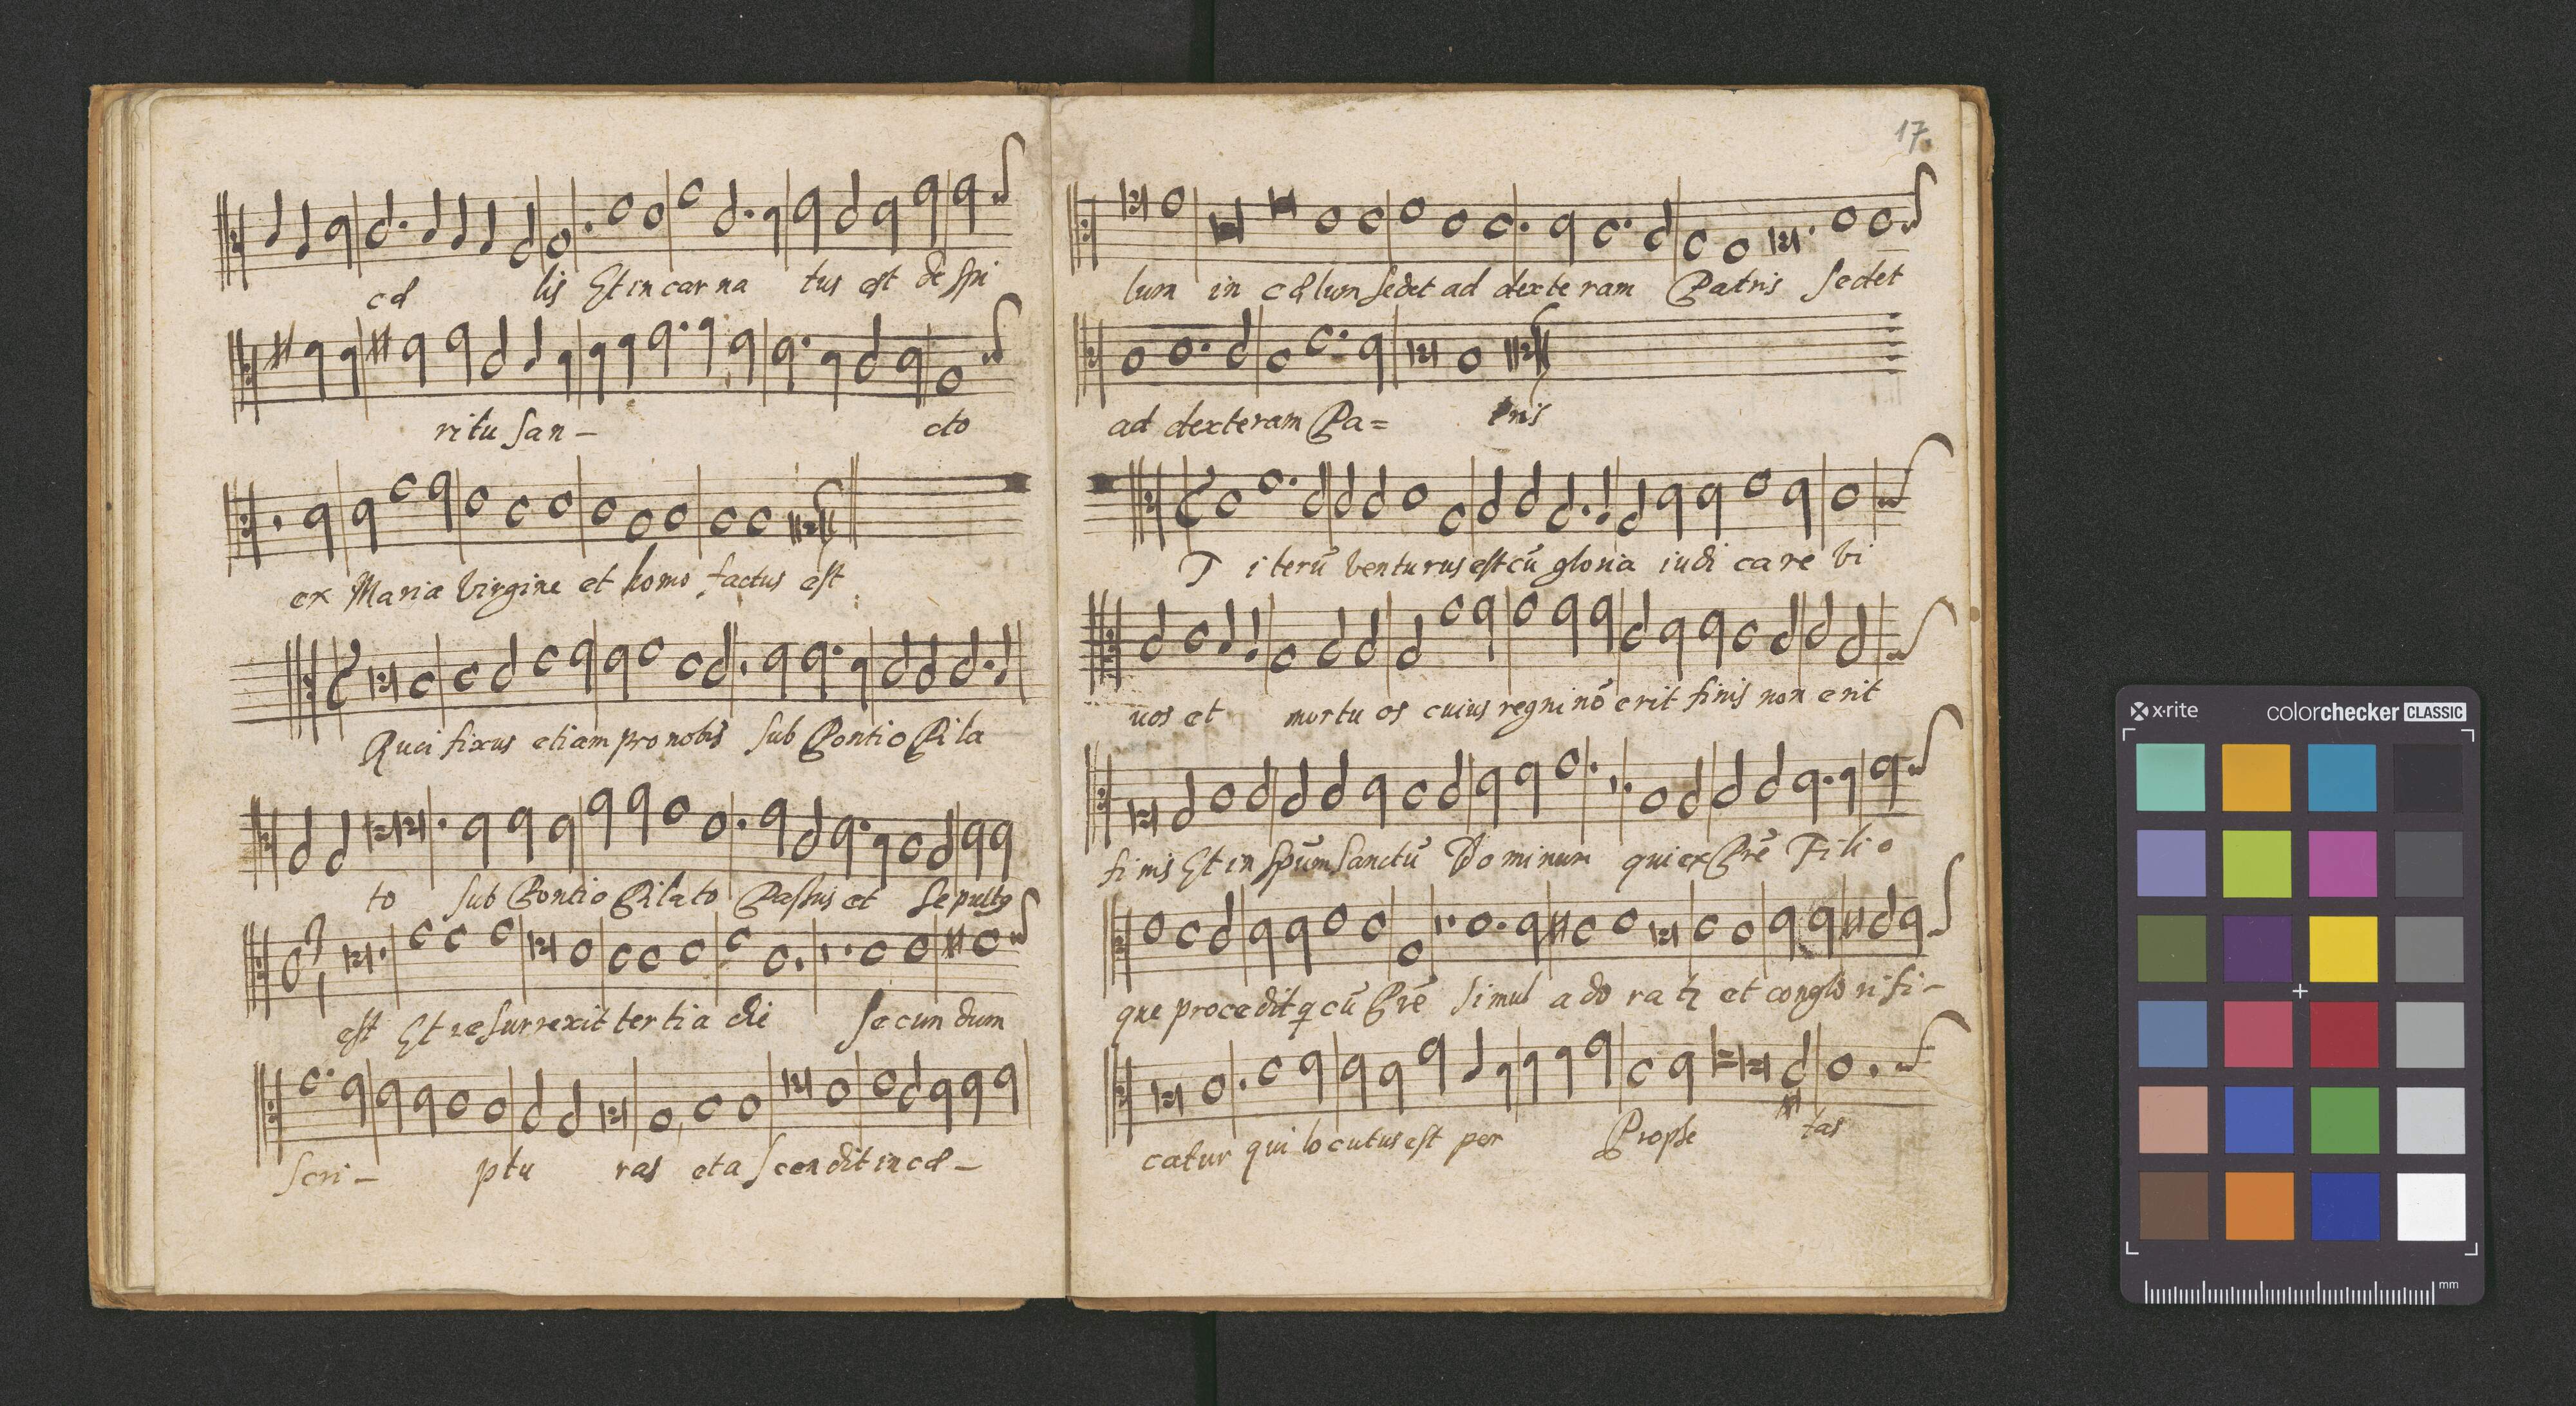 cæ lis Et in car na tus est de Spi
ritu San – cto
ex Maria Virgine et homo factus est
Cruci fixus etiam pro nobis sub Pontio Pi la
to sub Pontio Pilato Passus et Sepultꝰ
est Et resurrexit tertia die secundum
Scri – ptu ras et ascendit in cæ –
17.
lum in cælum sedet ad dexteram Patris sedet
ad dexteram Pa= tris
T iterū venturus est cū gloria iudi care vi
vos et mortu os cuius regni nō erit finis non erit
finis Et in Spūm Sanctū Dominum qui ex Pre᷃ Filio
que procedit q cū Pre᷃ simul ado ratʒ et conglo rifi –
catur qui locutus est per Prophe tas
x·rite colorchecker CLASSIC
mm